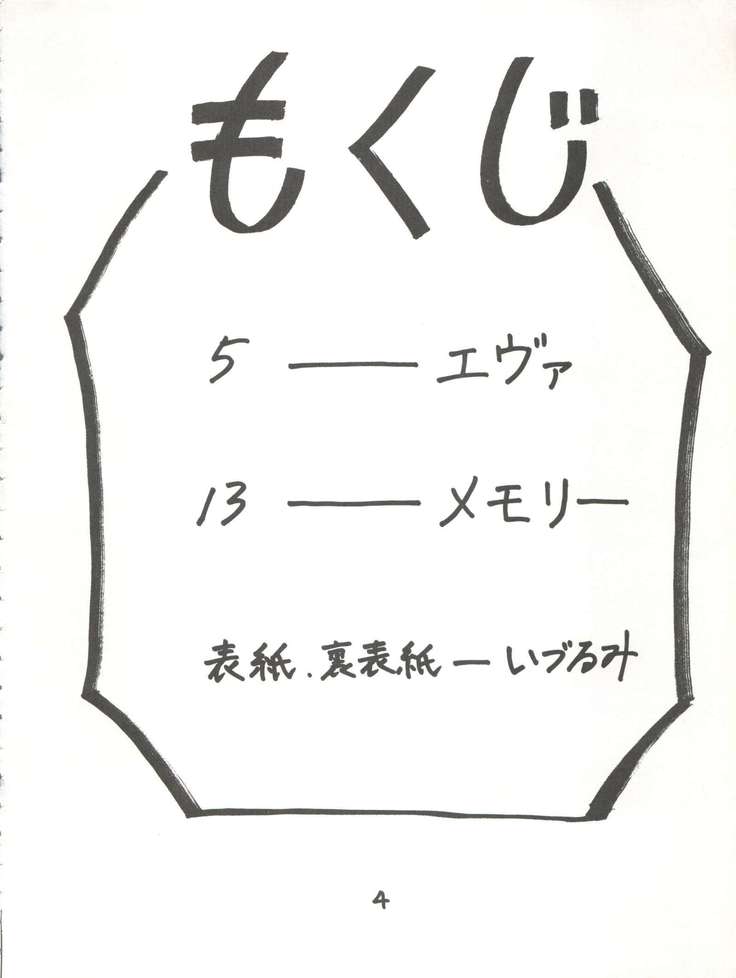 もくじ
5 ―― エヴァ
13 ―― メモリー
表紙.裏表紙 ― いづるみ
4